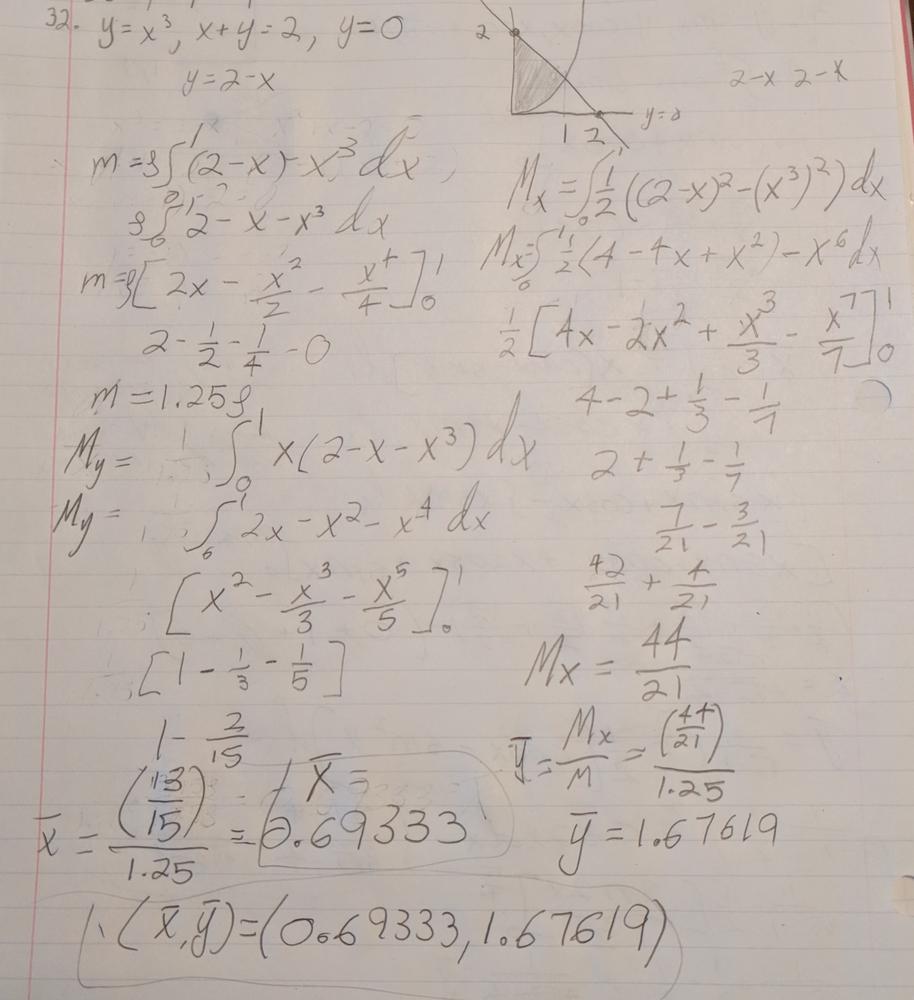 32. y = x³, x+y = 2, y = 0
y = 2-x
2
1 2
y=0
2-x 2-x
m = ρ∫₀¹ (2-x) - x³ dx
ρ∫₀¹ 2 - x - x³ dx
m = ρ[2x - x²/2 - x⁴/4]₀¹
2 - 1/2 - 1/4 - 0
m = 1.25ρ
My = ∫₀¹ x(2-x-x³) dx
My = ∫₀¹ 2x - x² - x⁴ dx
[x² - x³/3 - x⁵/5]₀¹
[1 - 1/3 - 1/5]
1 - 2/15
x̄ = (13/15)/1.25 = 0.69333
x̄ =
Mx = ∫₀¹ 1/2 ((2-x)² - (x³)²) dx
Mx = ∫₀¹ 1/2 (4 - 4x + x²) - x⁶ dx
1/2 [4x - 2x² + x³/3 - x⁷/7]₀¹
4 - 2 + 1/3 - 1/7
2 + 1/3 - 1/7
7/21 - 3/21
42/21 + 4/21
Mx = 44/21
ȳ = Mx/M = (44/21)/1.25
ȳ = 1.67619
(x̄,ȳ) = (0.69333, 1.67619)